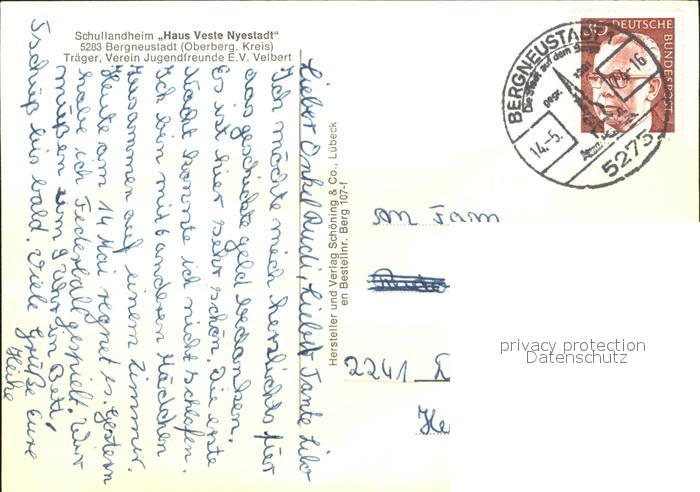 Schullandheim „Haus Veste Nyestadt"
5283 Bergneustadt (Oberberg. Kreis)
Träger, Verein Jugendfreunde E.V. Velbert
Lieber Onkel Rudi, Liebe Tante Lilo
Ich möchte mich herzlichts für
das geschickte geld bedanken.
Es ist hier sehr schön. Die erste
Nacht konnte ich nicht schlafen.
Ich bin mit 6 anderen Mädchen
zusammen auf einem Zimmer.
Heute am 14 Mai regnet es. Gestern
habe ich Federball gespielt. Wir
müßen um 9 Uhr in Bett.
Tschüß bis bald. Viele Grüße Eure
Heike
Hersteller und Verlag Schöning & Co., Lübeck
en Bestellnr. Berg 107-f
BERGNEUSTADT 1
Die Stadt auf dem
14.-5.
-16
5275
DEUTSCHE BUNDESPOST
An Fam
2241
He
privacy protection
Datenschutz